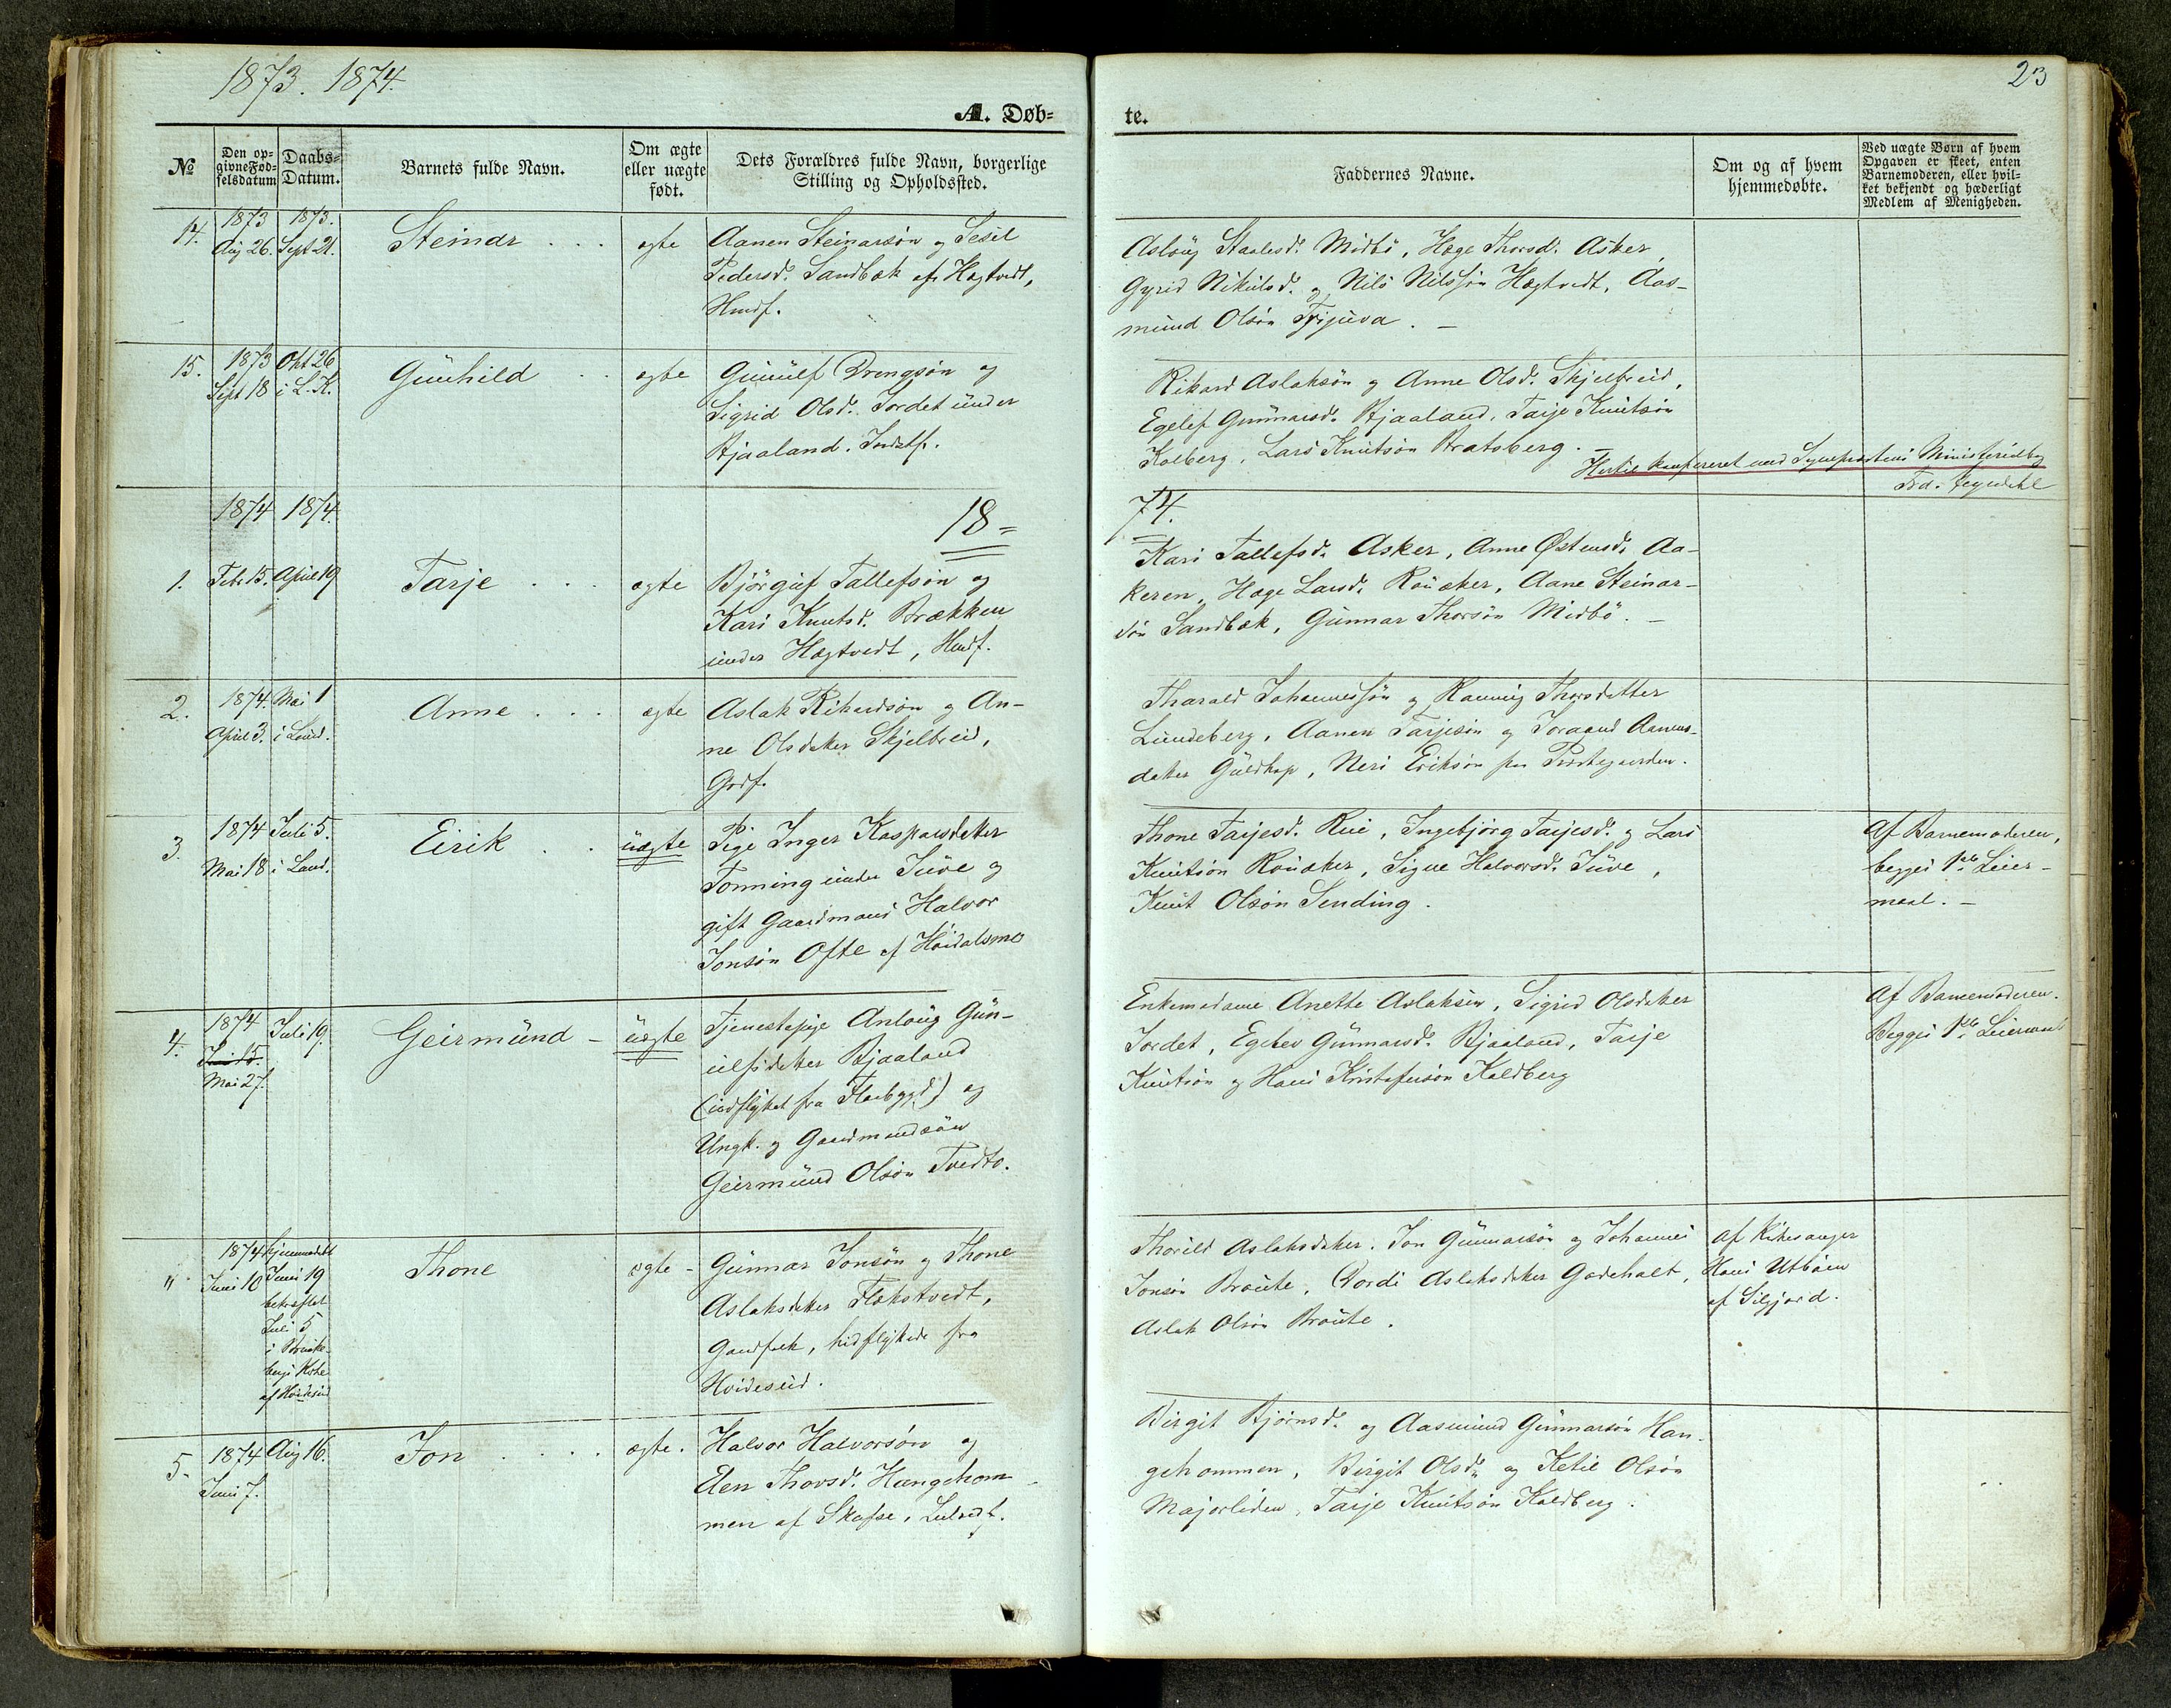 1873. 1874.
23
A. Døb=
te.
№
Den op-
givne Fød-
selsdatum
Daabs=
Datum.
Barnets fulde Navn.
Om ægte
eller uægte
født.
Dets Forældres fulde Navn, borgerlige
Stilling og Opholdssted.
Faddernes Navne.
Om og af hvem
hjemmedøbte.
Ved uægte Børn af hvem
Opgaven er skeet, enten
Barnemoderen, eller hvil-
ket bekjendt og hæderligt
Medlem af Menigheden.
14.
1873
Aug 26.
1873.
Sept 21.
Steinar . . .
ægte
Aanen Steinarsøn og Sesil
Pedersd. Sandbæk af Hægtvedt,
Hmdf.
Aslaug Staalesd. Midbø, Hæge Thorsd. Asker,
Gyrid Nikulsd. og Nils Nilssøn Hægtvedt, Aas-
mund Olsøn
15.
1873
Sept 18
Okt 26
i L. K.
Gunhild . .
ægte
Gunulf Drengsøn og
Sigrid Olsd. Jordet under
Bjaaland.
Rikard Aslaksøn og Anne Olsd. Skjelbreid,
Egelef Gunnarsd. Bjaaland, Tarje Knutsøn
Kolberg, Lars Knutsøn Bratsberg.
Hertil konfereret med Sognepræstens Ministerialbog
1874 1874.
18=
74.
1.
Febr 15.
April 19
Tarje . . .
ægte
Bjørguf Tallefsøn og
Kari Knutsd. Brækken
under Hægtvedt, Hmdf.
Kari Tallefsd. Asker, Anne Østensd. Aa-
keren, Hæge Larsd. Rouaker, Aane Steinar-
søn Sandbæk, Gunnar Thorsøn Midbø. —
2.
1874.
April 3.
Mai 1
i Lund.
Anne . . .
ægte
Aslak Rikardsøn og An-
ne Olsdatter Skjelbreid,
Grdf.
Tharald Johannessøn og Rannig Thorsdatter
Lundeberg, Aanen Tarjesøn og Joraand Aanens-
datter Guldhap, Neri Eriksøn fra Præstegaarden.
3.
1874
Mai 18
Juli 5.
i Laud.
Eirik . .
uægte
Pige Inger Kaspersdatter
Tonning under Juve og
gift Gaardmand Halvor
Jonsøn Ofte af Høidalsmo
Thone Tarjesd. Rui, Ingebjørg Tarjesd. og Lars
Knutsøn Rouaker, Signe Halvorsd. Juve,
Knut Olsøn Sending.
Af Barnemoderen,
begges 1ste Leier-
maal. —
4.
1874
Juni 15.
Mai 27.
Juli 19.
Geirmund –
uægte
Tjenestepige Anlaug Gun-
ulfsdatter Bjaaland
(indflyttet fra Flatbygd) og
Ungk. og Gaardmandssøn
Geirmund Olsøn Tvedto.
Enkemadame Anette Aslaksen, Sigrid Olsdatter
Jordet, Egelev Gunnarsd. Bjaaland, Tarje
Knutsøn og Hans Kristofersøn Kaldberg
Af Barnemoderen.
Begges 1ste Leiermaal
"
1874
Juni 10
hjemmedøbt
Juni 19
bekræftet
Juli 5
i Brunke-
bergs Kirke
af Hvideseid
Thone
ægte –
Gunnar Jonsøn og Thone
Aslaksdatter Flekstvedt,
Gaardfolk, hidflyttede fra
Hvideseid.
Thorild Aslaksdatter, Jon Gunnarsøn og Johannes
Jonsøn Broute, Dordi Aslaksdatter Godehalt,
Aslak Olsøn Broute.
af Kirkesanger
Hans Utbøen
af Siljord.
5.
1874
Juni 7.
Aug 16.
Jon . . .
ægte.
Halvor Halvorsøn og
Elen Thorsd. Hangehom-
men af Skafse,
Birgit Bjørnsd. og Aasmund Gunnarsøn Han-
gehommen, Birgit Olsd. og Ketil Olsøn
Majorliden, Tarje Knutsøn Kaldberg.